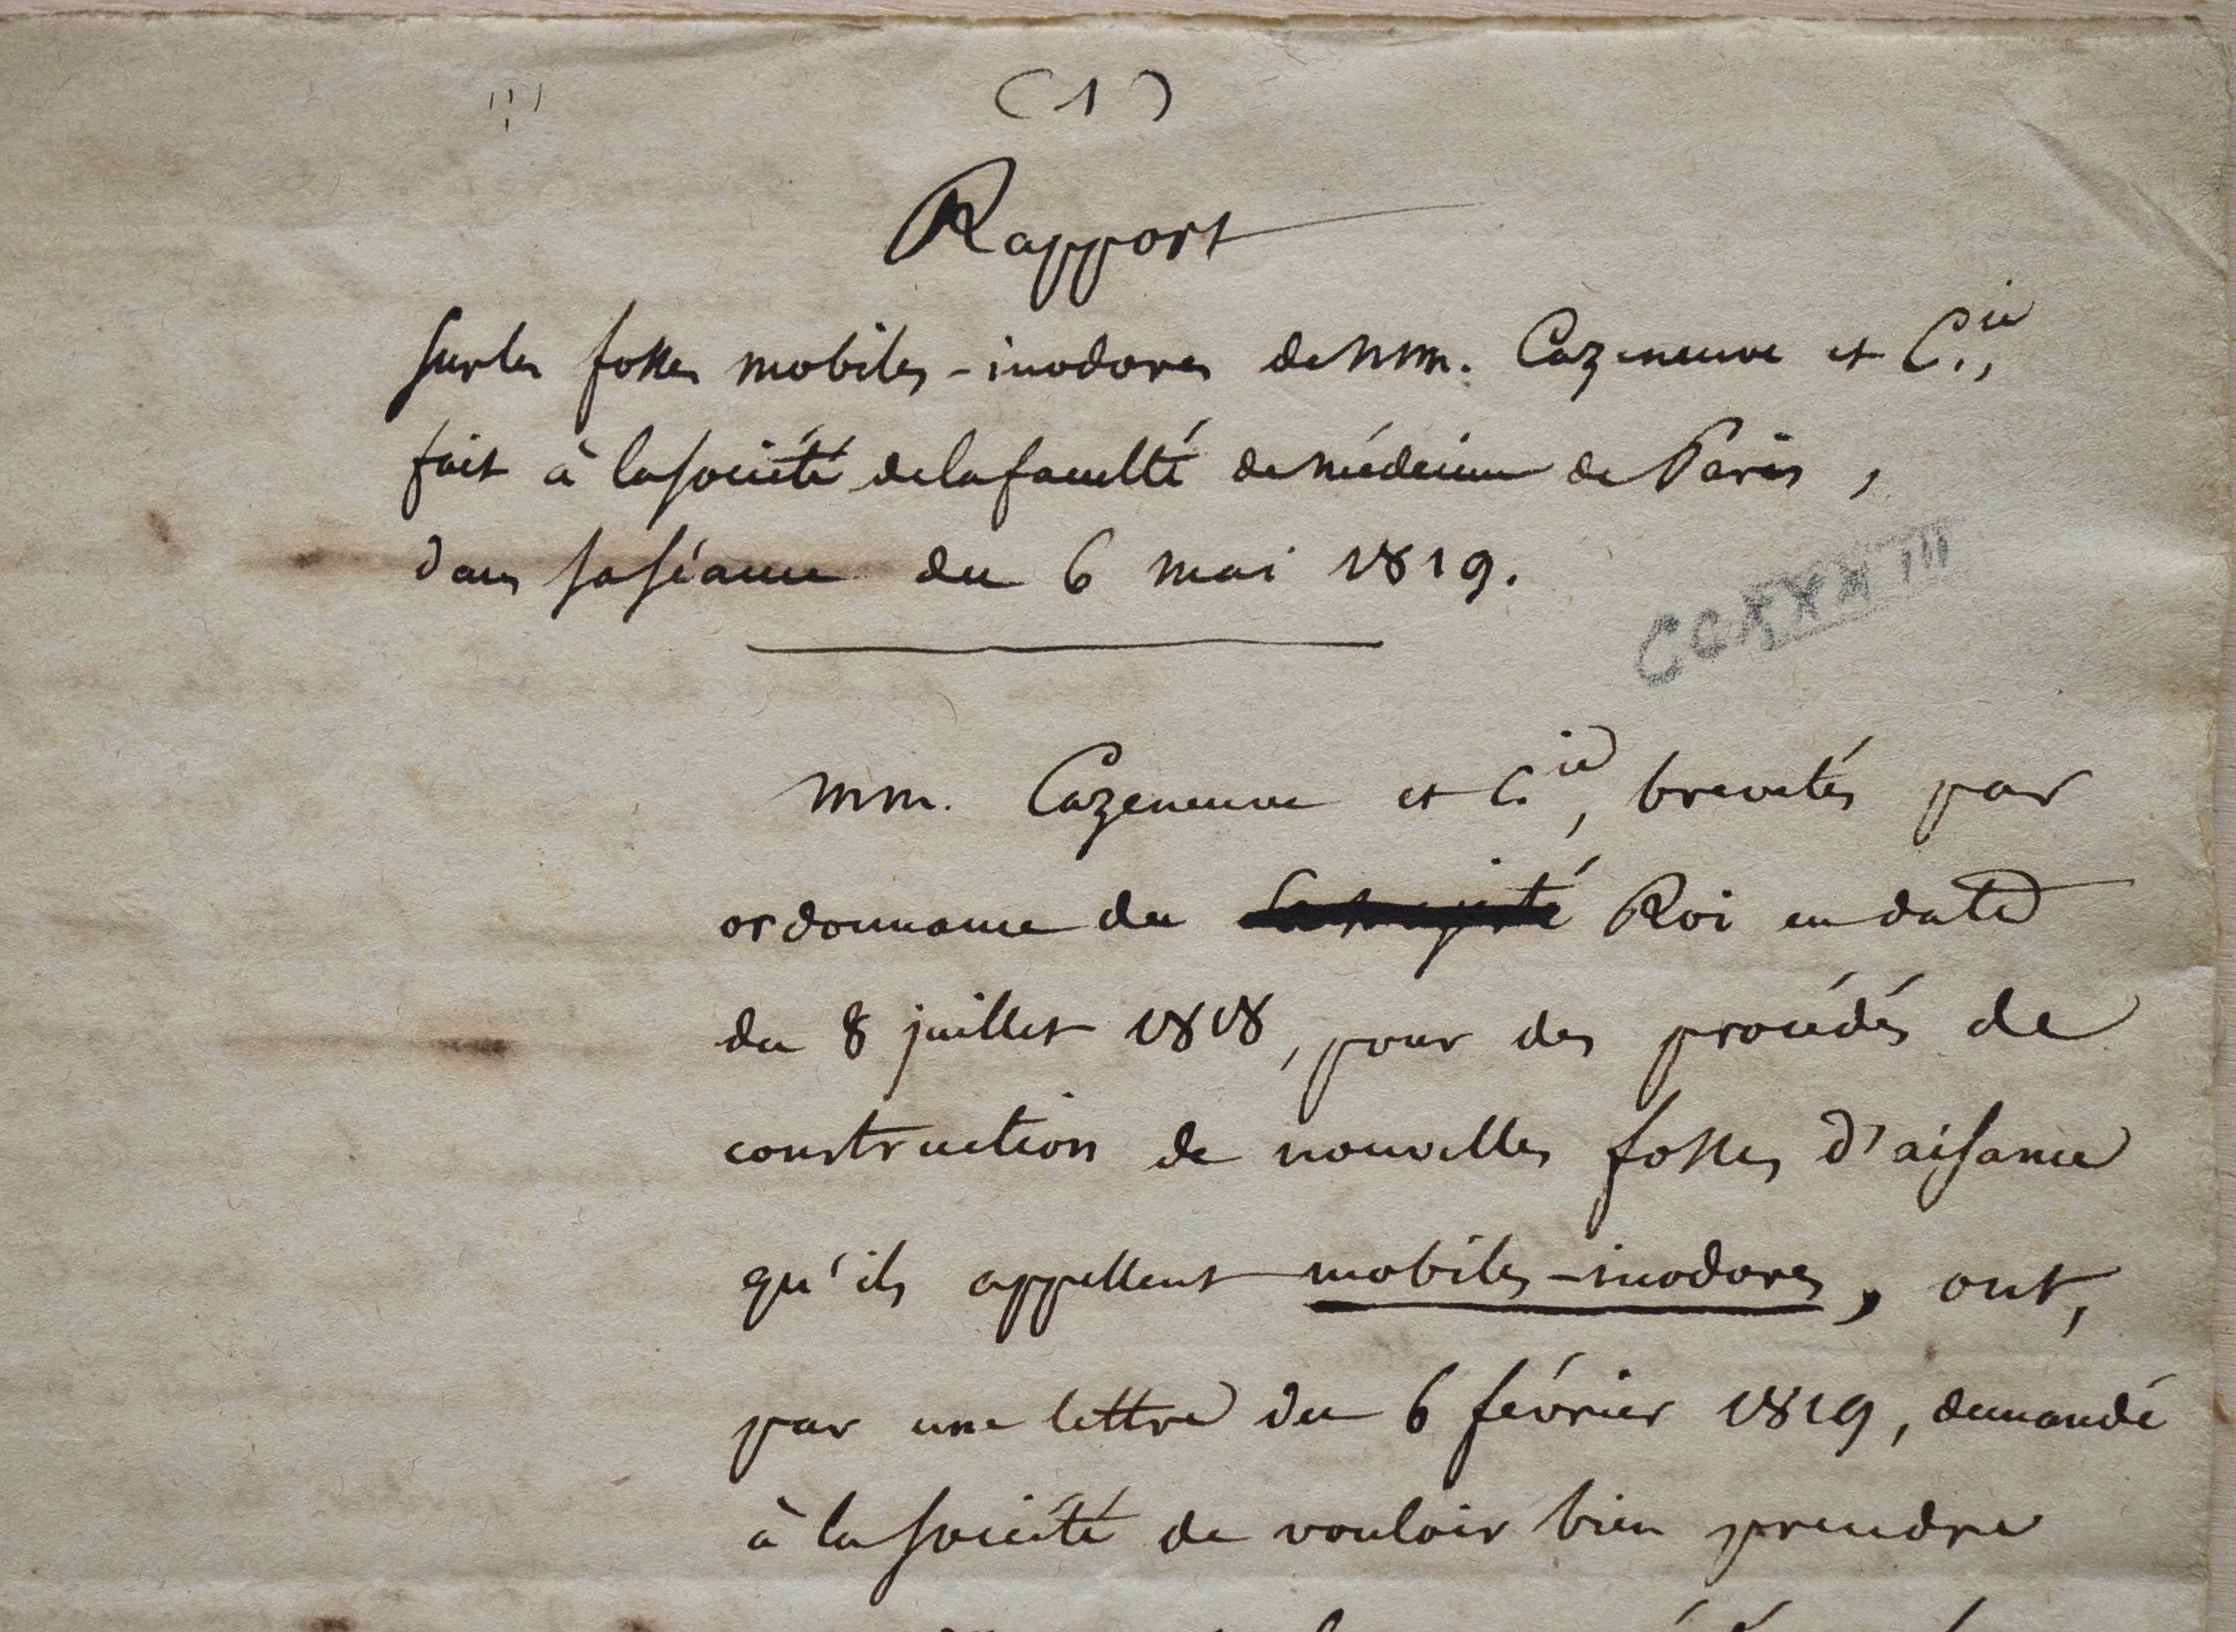 (1)
Rapport
sur les fosses mobiles-inodores de MM. Cazeneuve et C.ie,
fait à la société de la faculté de médecine de Paris,
dans sa séance du 6 mai 1819.
CCXXXIII
MM. Cazeneuve et C.ie, brevetés par
ordonnance du Sa majesté Roi en date
du 8 juillet 1818, pour des procédés de
construction de nouvelles fosses d'aisance
qu'ils appellent mobiles-inodores, ont,
par une lettre du 6 février 1819, demandé
à la société de vouloir bien prendre